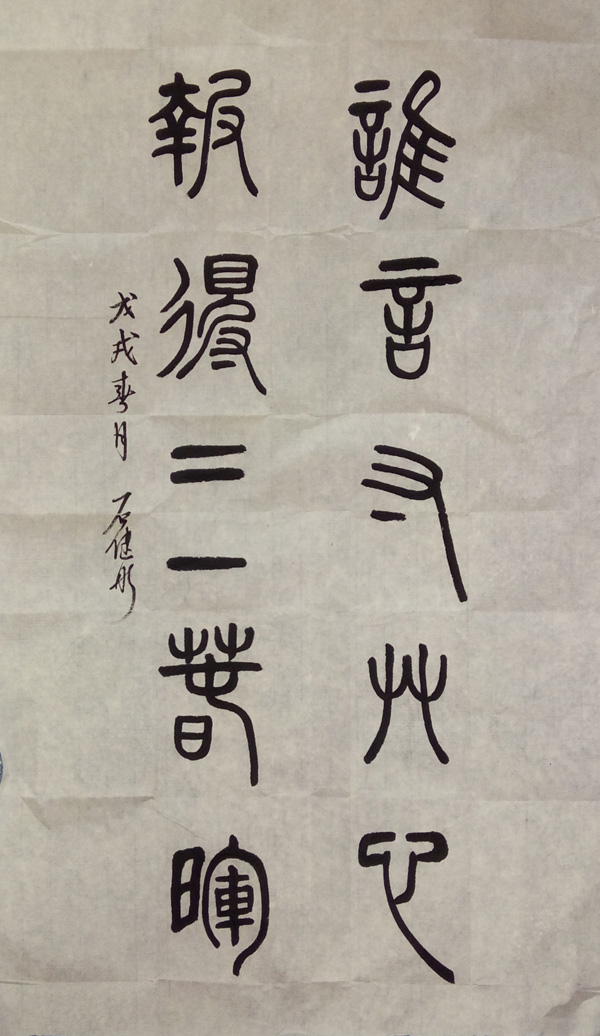 誰言寸艸心
報得三春暉
戊戌春月 石健彤